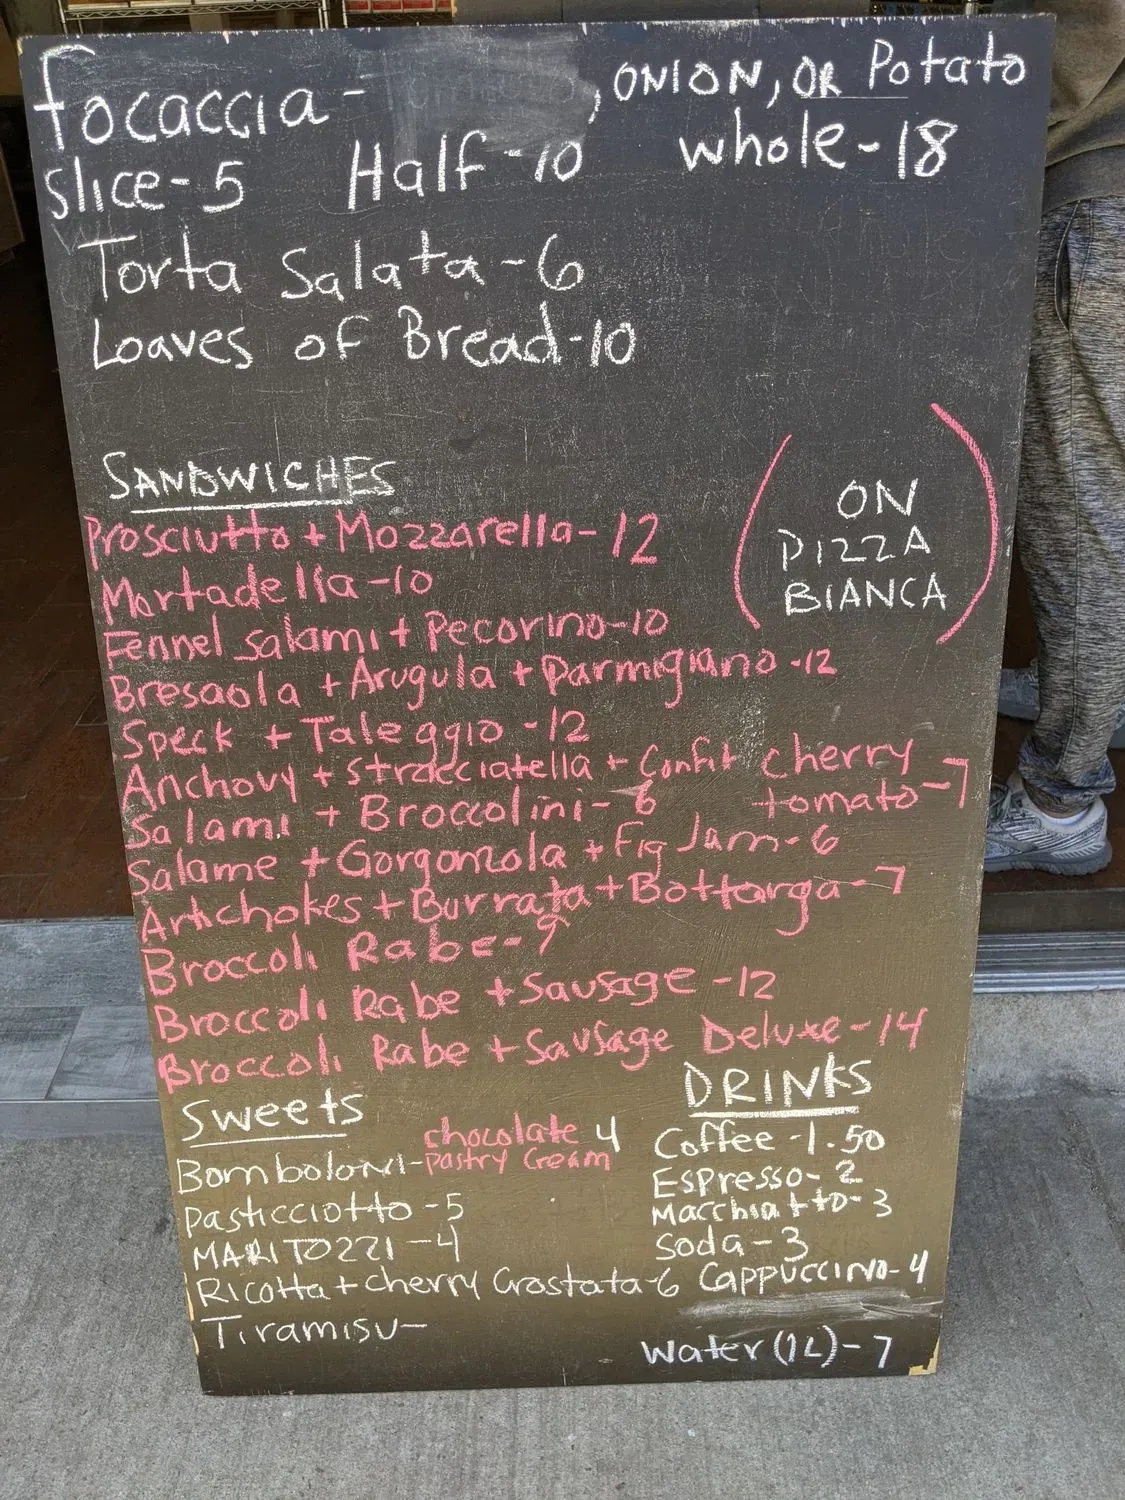 focaccia- , ONION, OR Potato
slice-5 Half-10 whole-18
Torta Salata-6
Loaves of Bread-10
SANDWICHES
(ON
PIZZA
BIANCA)
Prosciutto + Mozzarella-12
Mortadella-10
Fennel salami + Pecorino-10
Bresaola + Arugula + Parmigiano-12
Speck + Taleggio-12
Anchovy + stracciatella + Confit cherry
tomato-7
Salami + Broccolini-6
Salame + Gorgonzola + Fig Jam-6
Artichokes + Burrata + Bottarga-7
Broccoli Rabe-9
Broccoli Rabe + Sausage-12
Broccoli Rabe + Sausage Deluxe-14
Sweets
Bomboloni-chocolate 4
pastry cream
Pasticciotto-5
MARITOZZI-4
Ricotta + cherry Crostata-6
Tiramisu-
DRINKS
Coffee-1.50
Espresso-2
Macchiatto-3
Soda-3
Cappuccino-4
Water (1L)-7